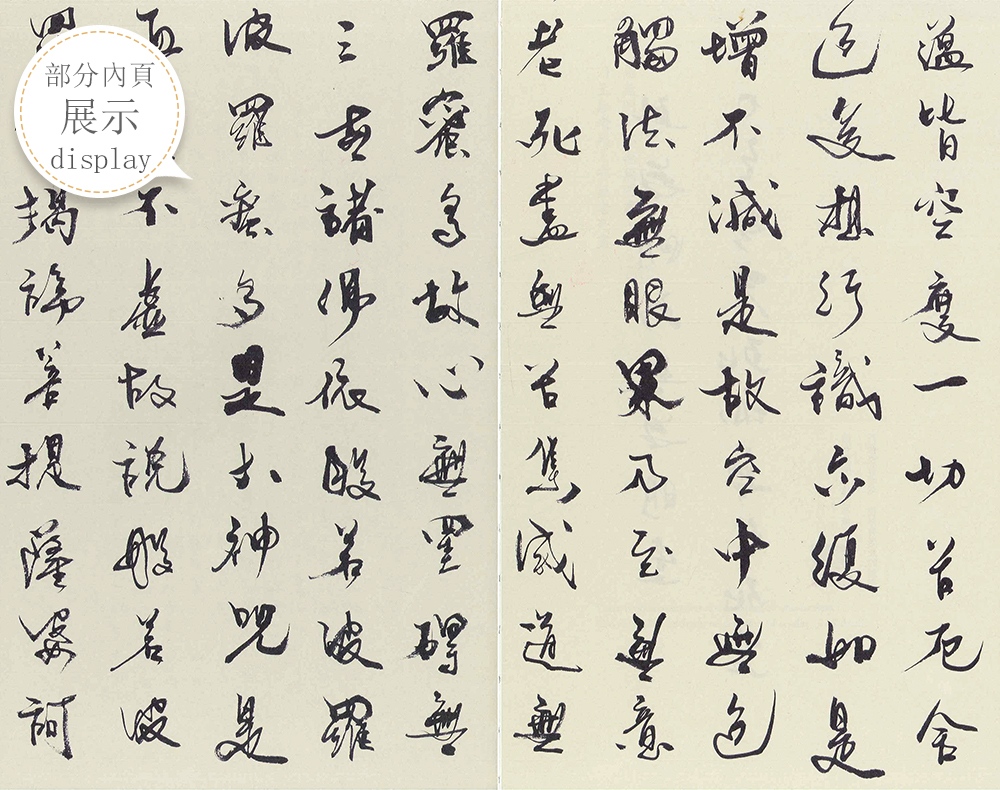 蘊皆空度一切苦厄舍
色受想行識亦復如是
增不減是故空中無色
觸法無眼界乃至無意
老死盡無苦集滅道無
羅蜜多故心無罣礙無
三世諸佛依般若波羅
波羅蜜多是大神咒是
真不虛故說般若波
揭諦菩提薩婆訶
部分內頁
展示
display